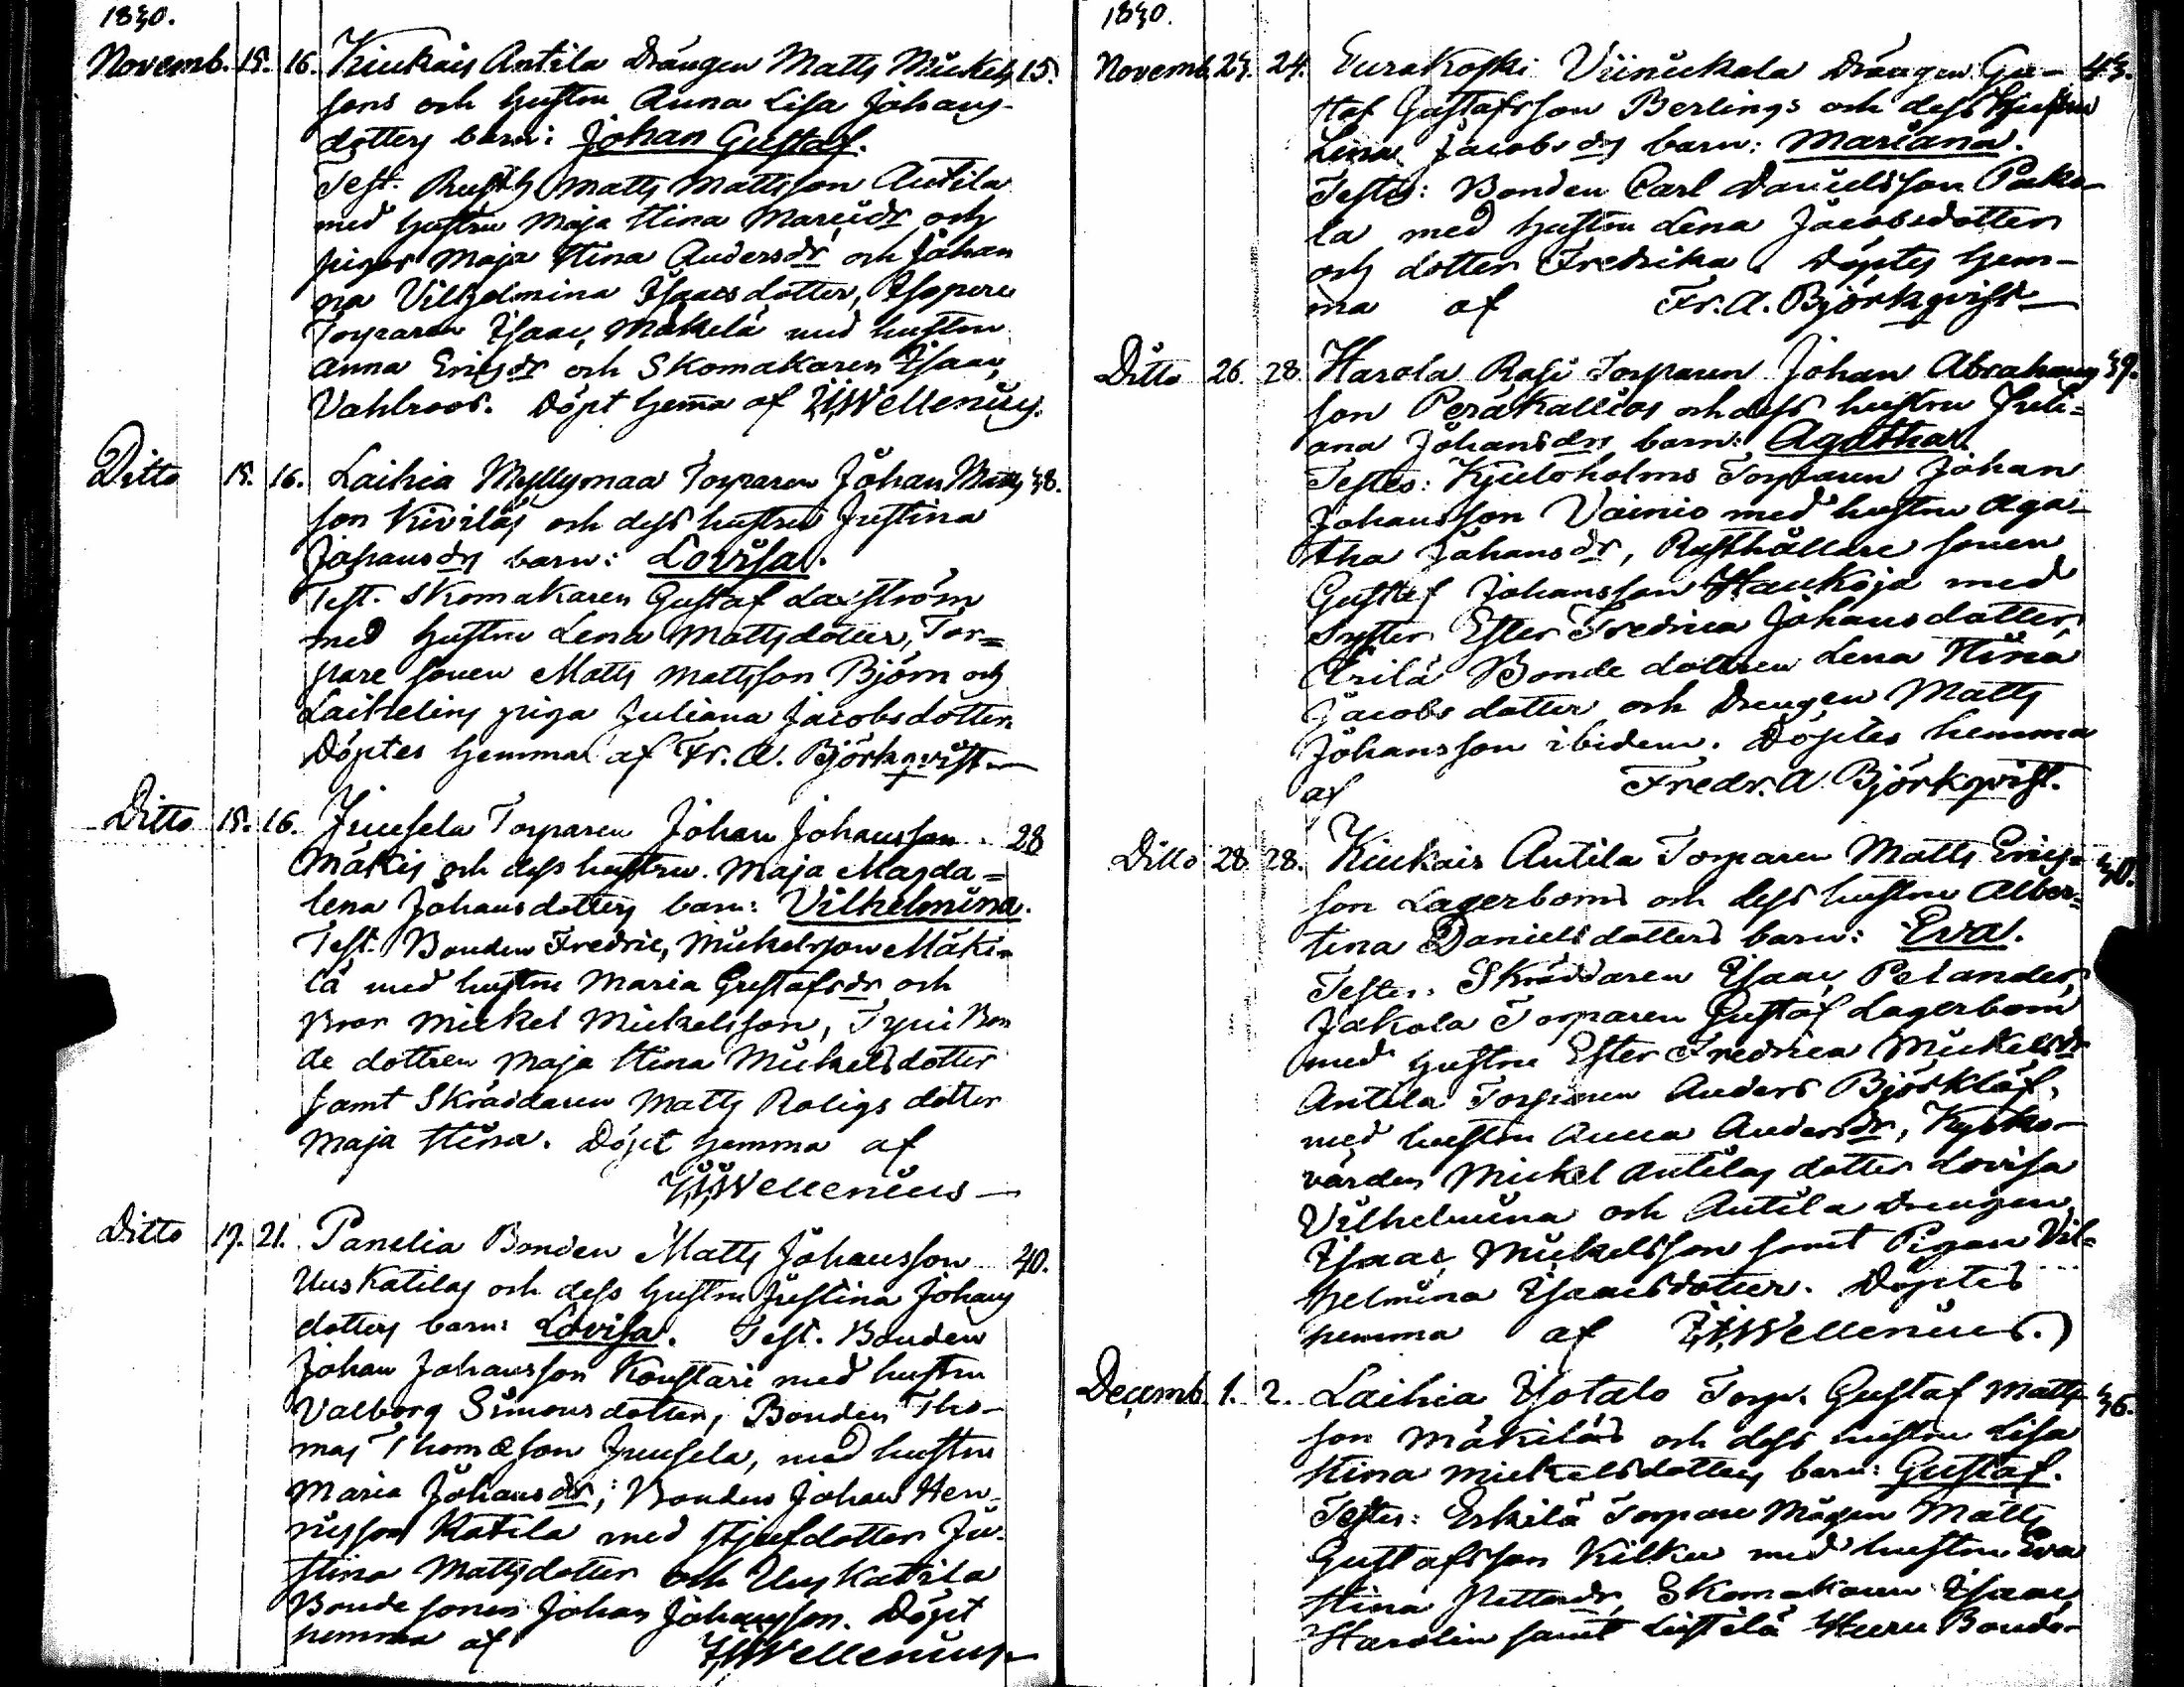 1830.
Novemb. 15. 16. Kiukais Antila Drängen Matts Mickels 15.
sons och hustru Anna Lisa Johans-
dotters barn: Johan Gustaf.
Test. Rusth Matts Mattsson Antila
med hustru Maja Stina Marcidr och
pigor Maja Stina Andersdr och Johan
na Vilhelmina Isaacsdotter,
Torparen Isaac Mäkelä med hustru
Anna Ericsdr och Skomakaren Isaac
Vahlroos. Döpt hemma af Wellenius.
Ditto 15. 16. Laihia Myllymaa Torparen Johan Matts 38.
son Kiviläs och dess hustru Justina
Johansdrs barn: Lovisa.
Test. Skomakaren Gustaf Laxström
med hustru Lena Mattsdotter, Tor=
pare sonen Matts Mattsson Björn och
piga Juliana Jacobsdotter
Döptes hemma af Fr. A. Björkqvist
Ditto 15. 16. Juusela Torparen Johan Johansson 28
Mäkis och dess hustru Maja Magda=
lena Johansdotters barn: Vilhelmina.
Test. Bonden Fredric Mickelsson Mäki-
lä med hustru Maria Gustafsdr och
Bror Mickel Mickelsson, Bon
de dottren Maja Stina Mickelsdotter
samt Skräddaren Matts Roligs dotter
Maja Stina. Döpt hemma af
Wellenius
Ditto 19. 21. Panelia Bonden Matts Johansson 40.
Uuskatilas och dess hustru Justina Johans
dotters barn: Lovisa. Test. Bonden
Johan Johansson Konstari med hustru
Valborg Simonsdotter, Bonden Tho-
mas Thomasson Juusela, med hustru
Maria Johansdr; Bonden Johan Hen-
ricsson Katila med stjufdotter Ju-
stina Mattsdotter och Uuskatila
Bonde sonen Johan Johansson. Döpt
hemma af Wellenius
1830.
Novemb. 23. 24. Eurakoski Viinikkala Drängen Gu- 43.
staf Gustafsson Berlings och dess Hustru
Lena Jacobsdrs barn: Mariana.
Testes: Bonden Carl Danielsson Pako-
la med hustru Lena Jacobsdotter
och dotter Fredrika. Döptes hem-
ma af Fr. A. Björkqvist
Ditto 26. 28. Harola Rasi Torparen Johan Abrahams 39.
son Peräkallios och dess hustru Juli=
ana Johansdrs barn: Agatha.
Testes: Kjuloholms Torparen Johan
Johansson Vainio med hustru Aga-
tha Johansdr, Rusthållare sonen
Gustaf Johansson Haukoja med
Syster Ester Fredrica Johansdotter,
Bonde dottren Lena Stina
Jacobsdotter och Drengen Matts
Johansson ibidem. Döptes hemma
af Fredr. A. Björkqvist.
Ditto 28. 28. Kiukais Antila Torparen Matts Erics= 30.
son Lagerboms och dess hustru Alber=
tina Danielsdotters barn: Eva.
Testes: Skräddaren Isaac Pelander,
Jakola Torparen Gustaf Lagerbom
med hustru Ester Fredrica Mickelsdr
Antila Torparen Anders Björklöf,
med hustru Anna Andersdr, Kyrko-
värden Mickel Antilas dotter Lovisa
Vilhelmina och Antila Drengen
Isaac Mickelsson samt Pigan Vil=
helmina Isaacsdotter. Döptes
hemma af Wellenius.
Decemb. 1. 2. Laihia Isotalo Torp. Gustaf Matts 36.
son Mäkiläs och dess hustru Lisa
Stina Mickelsdotters barn: Gustaf.
Testes: Erkilä Torpare Mågen Matts
Gustafsson Kilkku med hustru Eva
Stina Skomakaren Isaac
Harolin samt Heru Bonde-